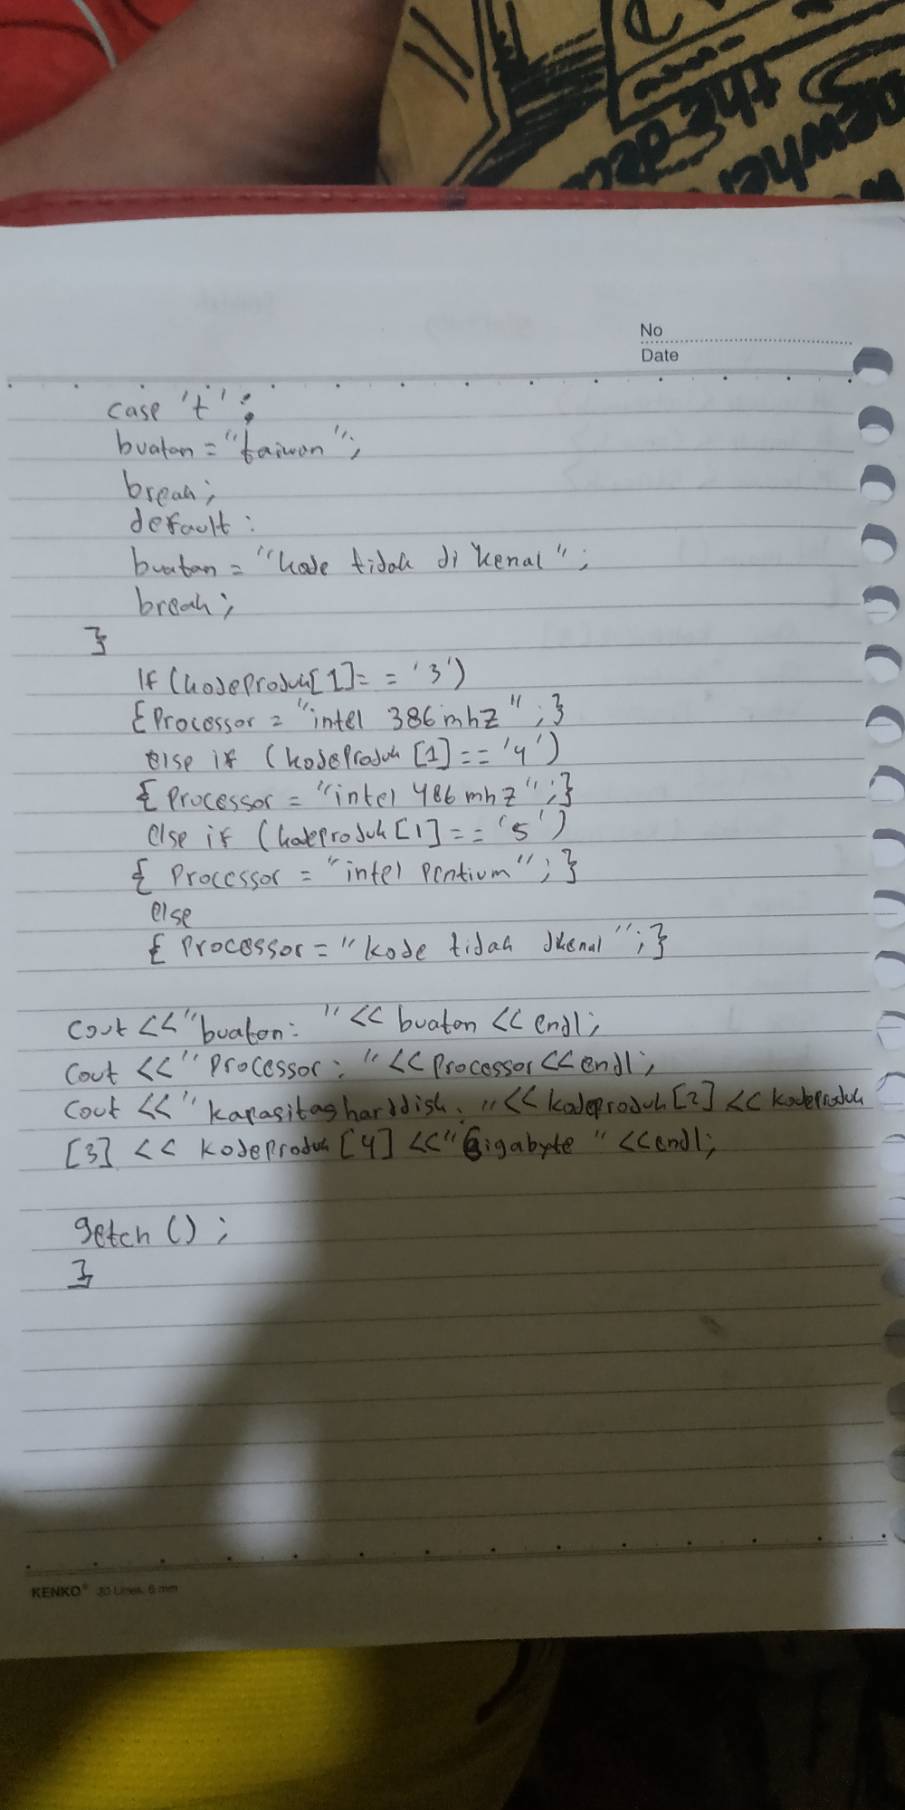 the dea
newhe
No
Date
case 't':
buatan = "taiwan";
break;
default:
buatan = "kode tidak di kenal";
break;
}
If (kodeproduk[1]= = '3')
{Processor = "intel 386 mhz";}
else if (kodeproduk [1]== '4')
{ Processor = "intel 486 mhz";}
else if (kodeproduk [1]== '5')
{ Processor = "intel Pentium"; }
else
{ Processor = "kode tidak dkenal";}
Cout <<"buatan: "<< buatan << endl;
Cout <<" Processor: "<< Processor << endl;
Cout <<" kapasitas harddisk: "<< kodeproduk [2] << kodeproduk
[3] << kodeproduk [4] <<" Gigabyte " << endl;
getch () ;
}
KENKO® 30 Lines, 6 mm